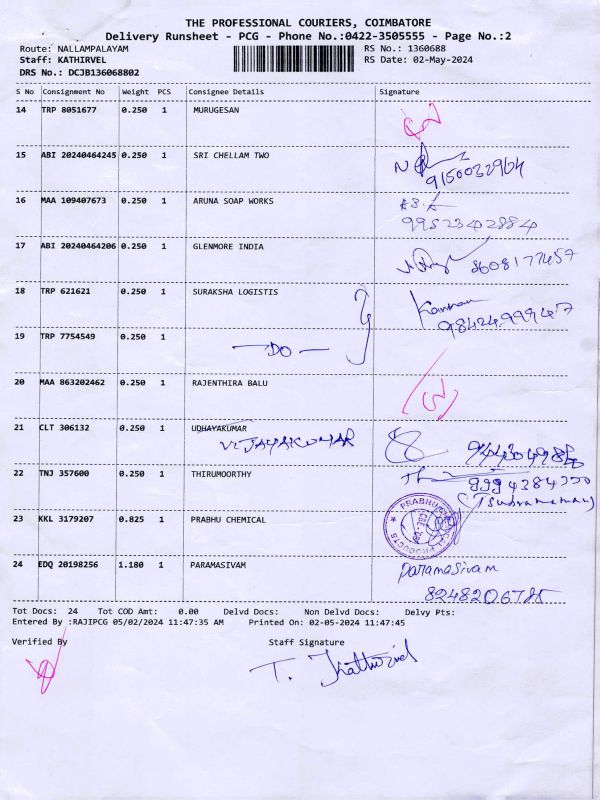 THE PROFESSIONAL COURIERS, COIMBATORE
Delivery Runsheet - PCG - Phone No.:0422-3505555 - Page No.:2
Route: NALLAMPALAYAM RS No.: 1360688
Staff: KATHIRVEL RS Date: 02-May-2024
DRS No.: DCJB136068802
S No Consignment No Weight PCS Consignee Details Signature
14 TRP 8051677 0.250 1 MURUGESAN
15 ABI 20240464245 0.250 1 SRI CHELLAM TWO
16 MAA 109407673 0.250 1 ARUNA SOAP WORKS
9952342884
17 ABI 20240464206 0.250 1 GLENMORE INDIA
8608177457
18 TRP 621621 0.250 1 SURAKSHA LOGISTIS Kannan
19 TRP 7754549 0.250 1
DO
20 MAA 863202462 0.250 1 RAJENTHIRA BALU
21 CLT 306132 0.250 1 UDHAYAKUMAR
VIJAYAKUMAR
22 TNJ 357600 0.250 1 THIRUMOORTHY
23 KKL 3179207 0.825 1 PRABHU CHEMICAL
PRABHU CHEMICAL PRODUCTS
24 EDQ 20198256 1.180 1 PARAMASIVAM Paramasivam
Tot Docs: 24 Tot COD Amt: 0.00 Delvd Docs: Non Delvd Docs: Delvy Pts:
Entered By :RAJIPCG 05/02/2024 11:47:35 AM Printed On: 02-05-2024 11:47:45
Verified By Staff Signature
T. Kathirvel